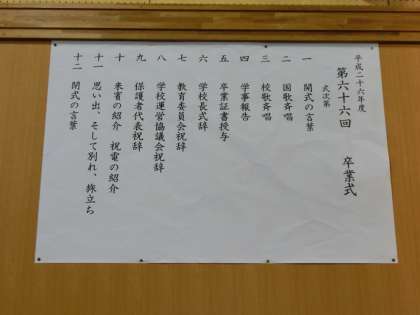 平成二十六年度
第六十六回 卒業式
式次第
一 開式の言葉
二 国歌斉唱
三 校歌斉唱
四 学事報告
五 卒業証書授与
六 学校長式辞
七 教育委員会祝辞
八 学校運営協議会祝辞
九 保護者代表祝辞
十 来賓の紹介 祝電の紹介
十一 思い出、そして別れ、旅立ち
十二 閉式の言葉